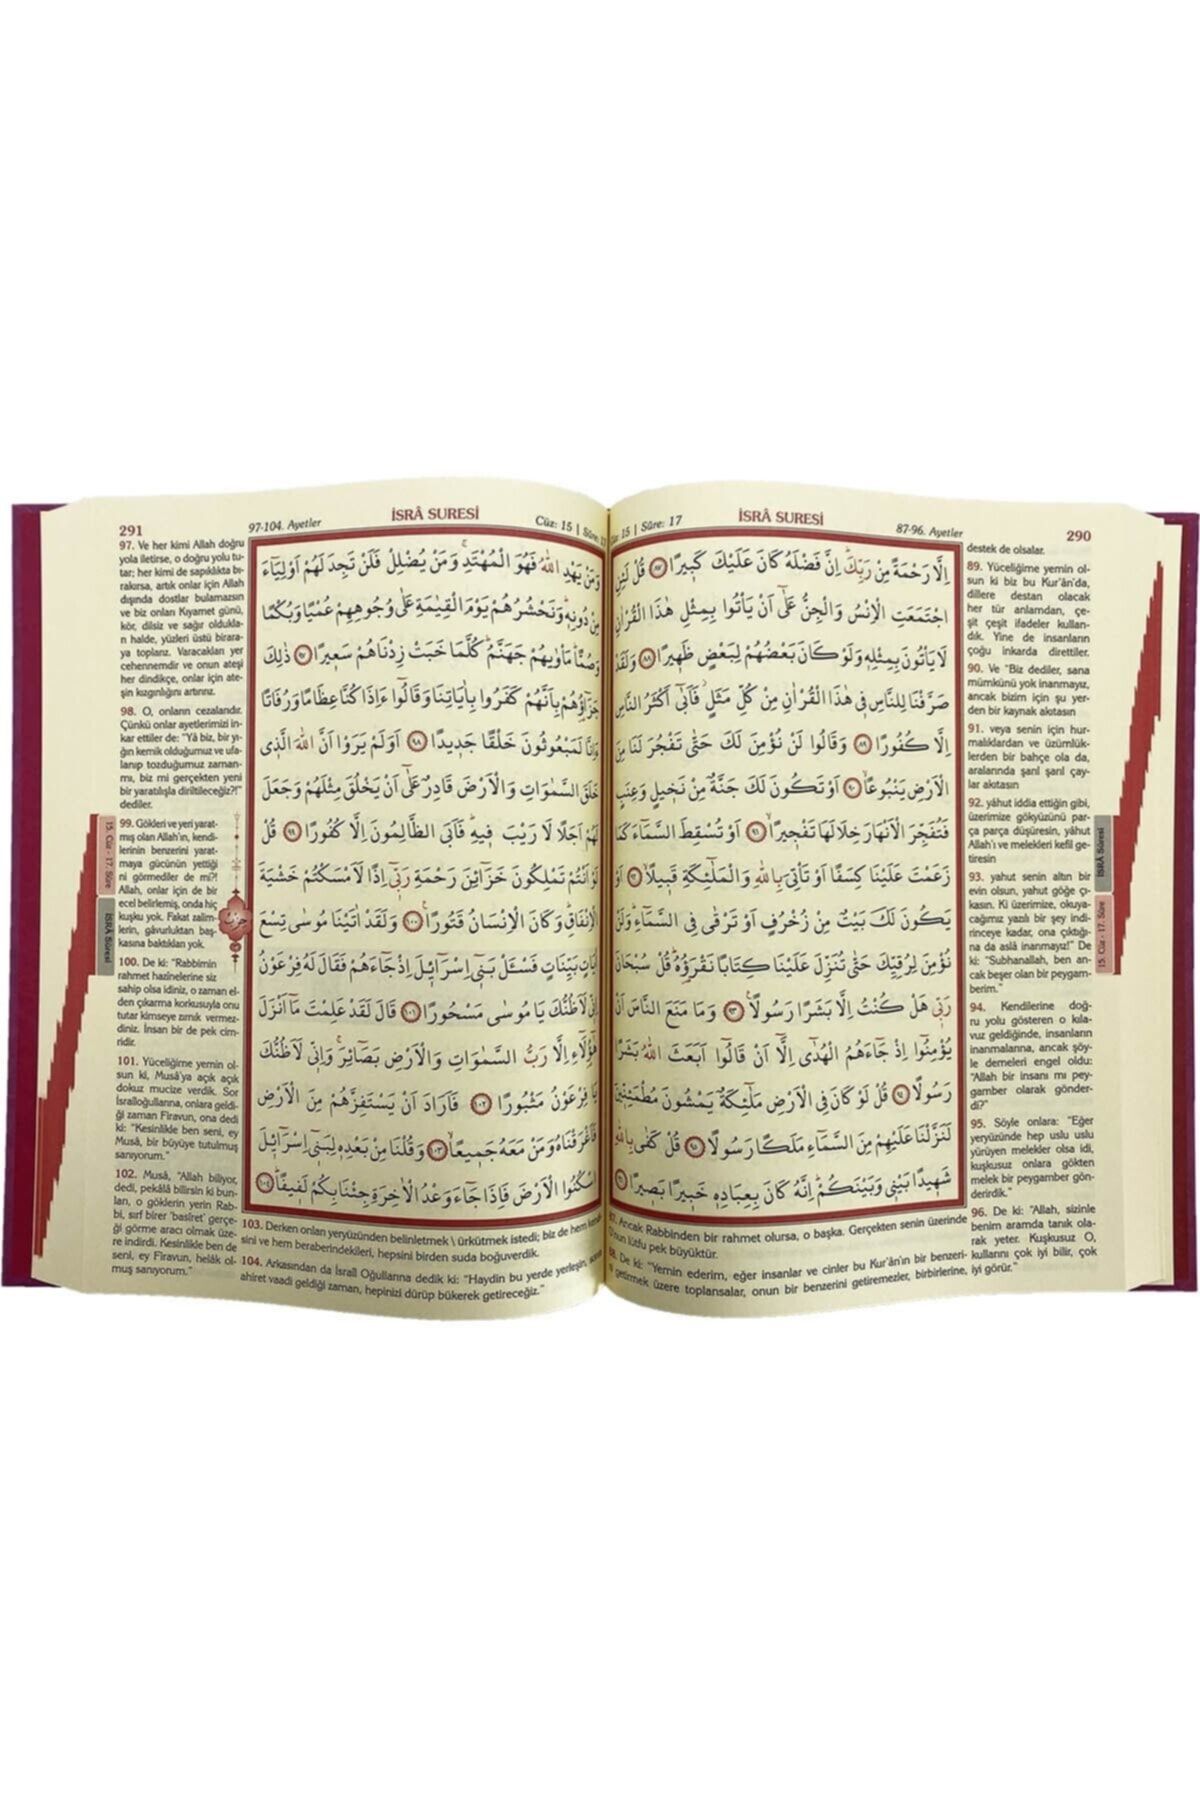 290
İSRÂ SURESİ
87-96. Ayetler
15 | Sûre: 17
اِلَّا رَحْمَةً مِنْ رَبِّكَۜ اِنَّ فَضْلَهُ كَانَ عَلَيْكَ كَب۪يرًا ﴿٨٧﴾ قُلْ لَئِنِ
اجْتَمَعَتِ الْاِنْسُ وَالْجِنُّ عَلٰٓى اَنْ يَأْتُوا بِمِثْلِ هٰذَا الْقُرْاٰنِ
لَا يَأْتُونَ بِمِثْلِه۪ وَلَوْ كَانَ بَعْضُهُمْ لِبَعْضٍ ظَه۪يرًا ﴿٨٨﴾ وَلَقَدْ
صَرَّفْنَا لِلنَّاسِ ف۪ي هٰذَا الْقُرْاٰنِ مِنْ كُلِّ مَثَلٍۘ فَاَبٰٓى اَكْثَرُ النَّاسِ
اِلَّا كُفُورًا ﴿٨٩﴾ وَقَالُوا لَنْ نُؤْمِنَ لَكَ حَتّٰى تَفْجُرَ لَنَا مِنَ
الْاَرْضِ يَنْبُوعًاۙ ﴿٩٠﴾ اَوْ تَكُونَ لَكَ جَنَّةٌ مِنْ نَخ۪يلٍ وَعِنَبٍ
فَتُفَجِّرَ الْاَنْهَارَ خِلَالَهَا تَفْج۪يرًاۙ ﴿٩١﴾ اَوْ تُسْقِطَ السَّمَٓاءَ كَمَا
زَعَمْتَ عَلَيْنَا كِسَفًا اَوْ تَأْتِيَ بِاللّٰهِ وَالْمَلٰٓئِكَةِ قَب۪يلًاۙ ﴿٩٢﴾ اَوْ
يَكُونَ لَكَ بَيْتٌ مِنْ زُخْرُفٍ اَوْ تَرْقٰى فِي السَّمَٓاءِۜ وَلَنْ
نُؤْمِنَ لِرُقِيِّكَ حَتّٰى تُنَزِّلَ عَلَيْنَا كِتَابًا نَقْرَؤُ۬هُۜ قُلْ سُبْحَانَ
رَبّ۪ي هَلْ كُنْتُ اِلَّا بَشَرًا رَسُولًا۟ ﴿٩٣﴾ وَمَا مَنَعَ النَّاسَ اَنْ
يُؤْمِنُٓوا اِذْ جَٓاءَهُمُ الْهُدٰٓى اِلَّٓا اَنْ قَالُٓوا اَبَعَثَ اللّٰهُ بَشَرًا
رَسُولًا ﴿٩٤﴾ قُلْ لَوْ كَانَ فِي الْاَرْضِ مَلٰٓئِكَةٌ يَمْشُونَ مُطْمَئِنّ۪ينَ
لَنَزَّلْنَا عَلَيْهِمْ مِنَ السَّمَٓاءِ مَلَكًا رَسُولًا ﴿٩٥﴾ قُلْ كَفٰى بِاللّٰهِ
شَه۪يدًا بَيْن۪ي وَبَيْنَكُمْۜ اِنَّهُ كَانَ بِعِبَادِه۪ خَب۪يرًا بَص۪يرًا ﴿٩٦﴾
87. Ancak Rabbinden bir rahmet olursa, o başka. Gerçekten senin üzerinde
O'nun lütfu pek büyüktür.
88. De ki: "Yemin ederim, eğer insanlar ve cinler bu Kur'ân'ın bir benzeri-
ni getirmek üzere toplansalar, onun bir benzerini getiremezler, birbirlerine,
destek de olsalar.
89. Yüceliğime yemin ol-
sun ki biz bu Kur'ân'da,
dillere destan olacak
her tür anlamdan, çe-
şit çeşit ifadeler kullan-
dık. Yine de insanların
çoğu inkarda direttiler.
90. Ve "Biz dediler, sana
mümkünü yok inanmayız,
ancak bizim için şu yer-
den bir kaynak akıtasın
91. veya senin için hur-
malıklardan ve üzümlük-
lerden bir bahçe ola da,
aralarında şarıl şarıl çay-
lar akıtasın
92. yâhut iddia ettiğin gibi,
üzerimize gökyüzünü par-
ça parça düşüresin, yâhut
Allah'ı ve melekleri kefil ge-
tiresin
93. yahut senin altın bir
evin olsun, yahut göğe çı-
kasın. Ki üzerimize, okuya-
cağımız yazılı bir şey indi-
rinceye kadar, ona çıktığı-
na da aslâ inanmayız!" De
ki: "Subhanallah, ben an-
cak beşer olan bir peygam-
berim."
94. Kendilerine doğ-
ru yolu gösteren o kıla-
vuz geldiğinde, insanların
inanmalarına, ancak şöy-
le demeleri engel oldu:
"Allah bir insanı mı pey-
gamber olarak gönder-
di?"
95. Söyle onlara: "Eğer
yeryüzünde hep uslu uslu
yürüyen melekler olsa idi,
kuşkusuz onlara gökten
melek bir peygamber gön-
derirdik."
96. De ki: "Allah, sizinle
benim aramda tanık ola-
rak yeter. Kuşkusuz O,
kullarını çok iyi bilir, çok
iyi görür."
İSRÂ Sûresi
15. Cüz - 17. Sûre
291
97-104. Ayetler
İSRÂ SURESİ
Cüz: 15 | Sûre: 17
وَمَنْ يَهْدِ اللّٰهُ فَهُوَ الْمُهْتَدِۚ وَمَنْ يُضْلِلْ فَلَنْ تَجِدَ لَهُمْ اَوْلِيَٓاءَ
مِنْ دُونِه۪ۜ وَنَحْشُرُهُمْ يَوْمَ الْقِيٰمَةِ عَلٰى وُجُوهِهِمْ عُمْيًا وَبُكْمًا
وَصُمًّاۜ مَأْوٰيهُمْ جَهَنَّمُۜ كُلَّمَا خَبَتْ زِدْنَاهُمْ سَع۪يرًا ﴿٩٧﴾ ذٰلِكَ
جَزَٓاؤُ۬هُمْ بِاَنَّهُمْ كَفَرُوا بِاٰيَاتِنَا وَقَالُٓوا ءَاِذَا كُنَّا عِظَامًا وَرُفَاتًا
ءَاِنَّا لَمَبْعُوثُونَ خَلْقًا جَد۪يدًا ﴿٩٨﴾ اَوَلَمْ يَرَوْا اَنَّ اللّٰهَ الَّذ۪ي
خَلَقَ السَّمٰوَاتِ وَالْاَرْضَ قَادِرٌ عَلٰٓى اَنْ يَخْلُقَ مِثْلَهُمْ وَجَعَلَ
لَهُمْ اَجَلًا لَا رَيْبَ ف۪يهِۜ فَاَبَى الظَّالِمُونَ اِلَّا كُفُورًا ﴿٩٩﴾ قُلْ
لَوْ اَنْتُمْ تَمْلِكُونَ خَزَٓائِنَ رَحْمَةِ رَبّ۪ٓي اِذًا لَاَمْسَكْتُمْ خَشْيَةَ
الْاِنْفَاقِۜ وَكَانَ الْاِنْسَانُ قَتُورًا۟ ﴿١٠٠﴾ وَلَقَدْ اٰتَيْنَا مُوسٰى تِسْعَ
اٰيَاتٍ بَيِّنَاتٍ فَسْـَٔلْ بَن۪ٓي اِسْرَٓائ۪لَ اِذْ جَٓاءَهُمْ فَقَالَ لَهُ فِرْعَوْنُ
اِنّ۪ي لَاَظُنُّكَ يَا مُوسٰى مَسْحُورًا ﴿١٠١﴾ قَالَ لَقَدْ عَلِمْتَ مَٓا اَنْزَلَ
هٰٓؤُ۬لَٓاءِ اِلَّا رَبُّ السَّمٰوَاتِ وَالْاَرْضِ بَصَٓائِرَۚ وَاِنّ۪ي لَاَظُنُّكَ
يَا فِرْعَوْنُ مَثْبُورًا ﴿١٠٢﴾ فَاَرَادَ اَنْ يَسْتَفِزَّهُمْ مِنَ الْاَرْضِ
فَاَغْرَقْنَاهُ وَمَنْ مَعَهُ جَم۪يعًاۙ ﴿١٠٣﴾ وَقُلْنَا مِنْ بَعْدِه۪ لِبَن۪ٓي اِسْرَٓائ۪لَ
اسْكُنُوا الْاَرْضَ فَاِذَا جَٓاءَ وَعْدُ الْاٰخِرَةِ جِئْنَا بِكُمْ لَف۪يفًاۜ ﴿١٠٤﴾
حزب
97. Ve her kimi Allah doğru
yola iletirse, o doğru yolu tu-
tar; her kimi de sapıklıkta bı-
rakırsa, artık onlar için Allah
dışında dostlar bulamazsın
ve biz onları Kıyamet günü,
kör, dilsiz ve sağır oldukla-
rı halde, yüzleri üstü birara-
ya toplarız. Varacakları yer
cehennemdir ve onun ateşi
her dindikçe, onlar için ate-
şin kızgınlığını artırırız.
98. O, onların cezalarıdır.
Çünkü onlar ayetlerimizi in-
kar ettiler de: "Yâ biz, bir yı-
ğın kemik olduğumuz ve ufa-
lanıp tozduğumuz zaman-
mı, biz mi gerçekten yeni
bir yaratılışla diriltileceğiz?!"
dediler.
99. Gökleri ve yeri yarat-
mış olan Allah'ın, kendi-
lerinin benzerini yarat-
maya gücünün yettiği
ni görmediler de mi?!
Allah, onlar için de bir
ecel belirlemiş, onda hiç
kuşku yok. Fakat zalim-
lerin, gâvurluktan baş-
kasına baktıkları yok.
100. De ki: "Rabbimin
rahmet hazînelerine siz
sahip olsa idiniz, o zaman el-
den çıkarma korkusuyla onu
tutar kimseye zırnık vermez-
diniz. İnsan bir de pek cim-
ridir.
101. Yüceliğime yemin ol-
sun ki, Musâ'ya açık açık
dokuz mucize verdik. Sor
İsrailoğullarına, onlara geldi-
ği zaman Firavun, ona dedi
ki: "Kesinlikle ben seni, ey
Musâ, bir büyüye tutulmuş
sanıyorum."
102. Musâ, "Allah biliyor,
dedi, pekâlâ bilirsin ki bun-
ları, o göklerin yerin Rab-
bi, sırf birer 'basîret' gerçe-
ği görme aracı olmak üze-
re indirdi. Kesinlikle ben de
seni, ey Firavun, helâk ol-
muş sanıyorum."
103. Derken onları yeryüzünden belinletmek \ ürkütmek istedi; biz de hem
sini ve hem beraberindekileri, hepsini birden suda boğuverdik.
104. Arkasından da İsraîl Oğullarına dedik ki: "Haydin bu yerde yerleşin,
ahiret vaadi geldiği zaman, hepinizi dürüp bükerek getireceğiz."
15. Cüz - 17. Sûre
İSRÂ Sûresi